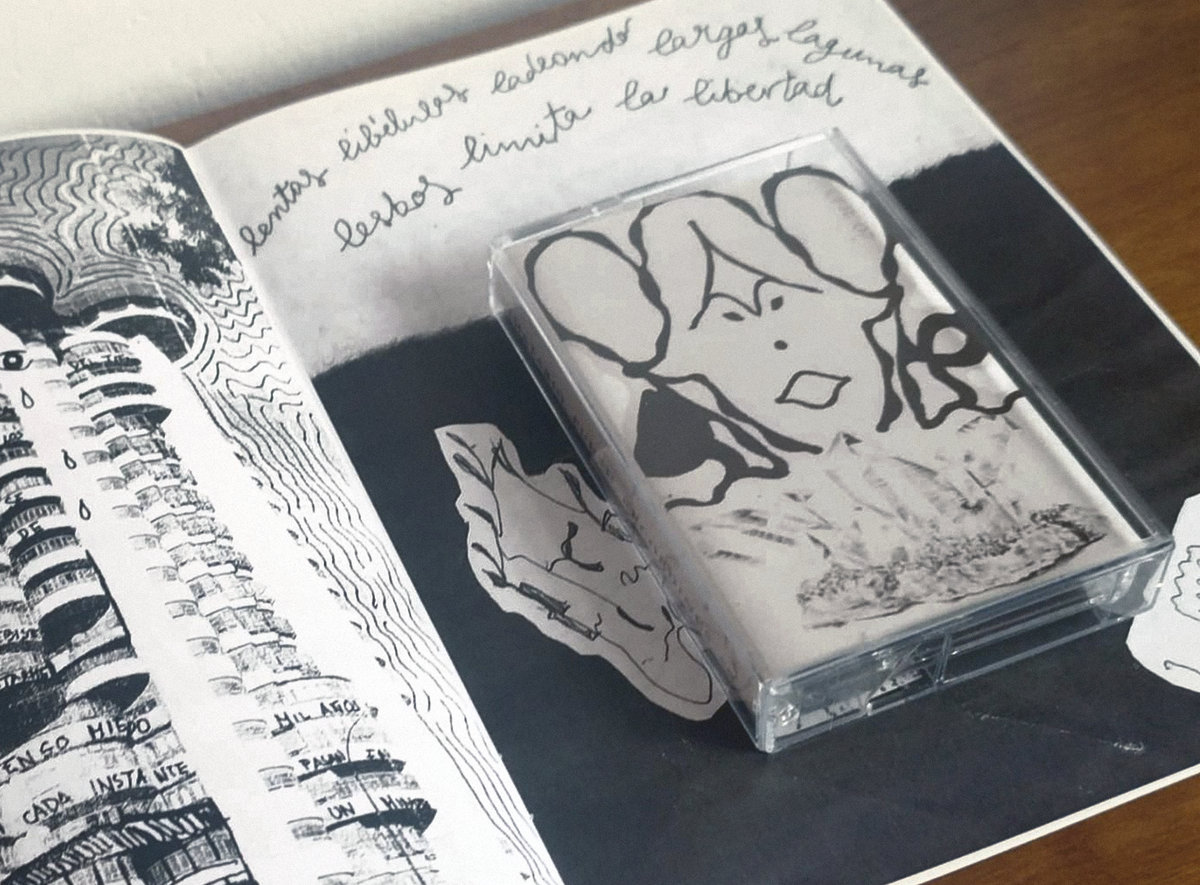 lentas libélulas ladeando largas lagunas
lesbos limita la libertad
SE
DE
MIEDO
CADA INSTANTE
MIL AÑOS
PASAN EN
UN